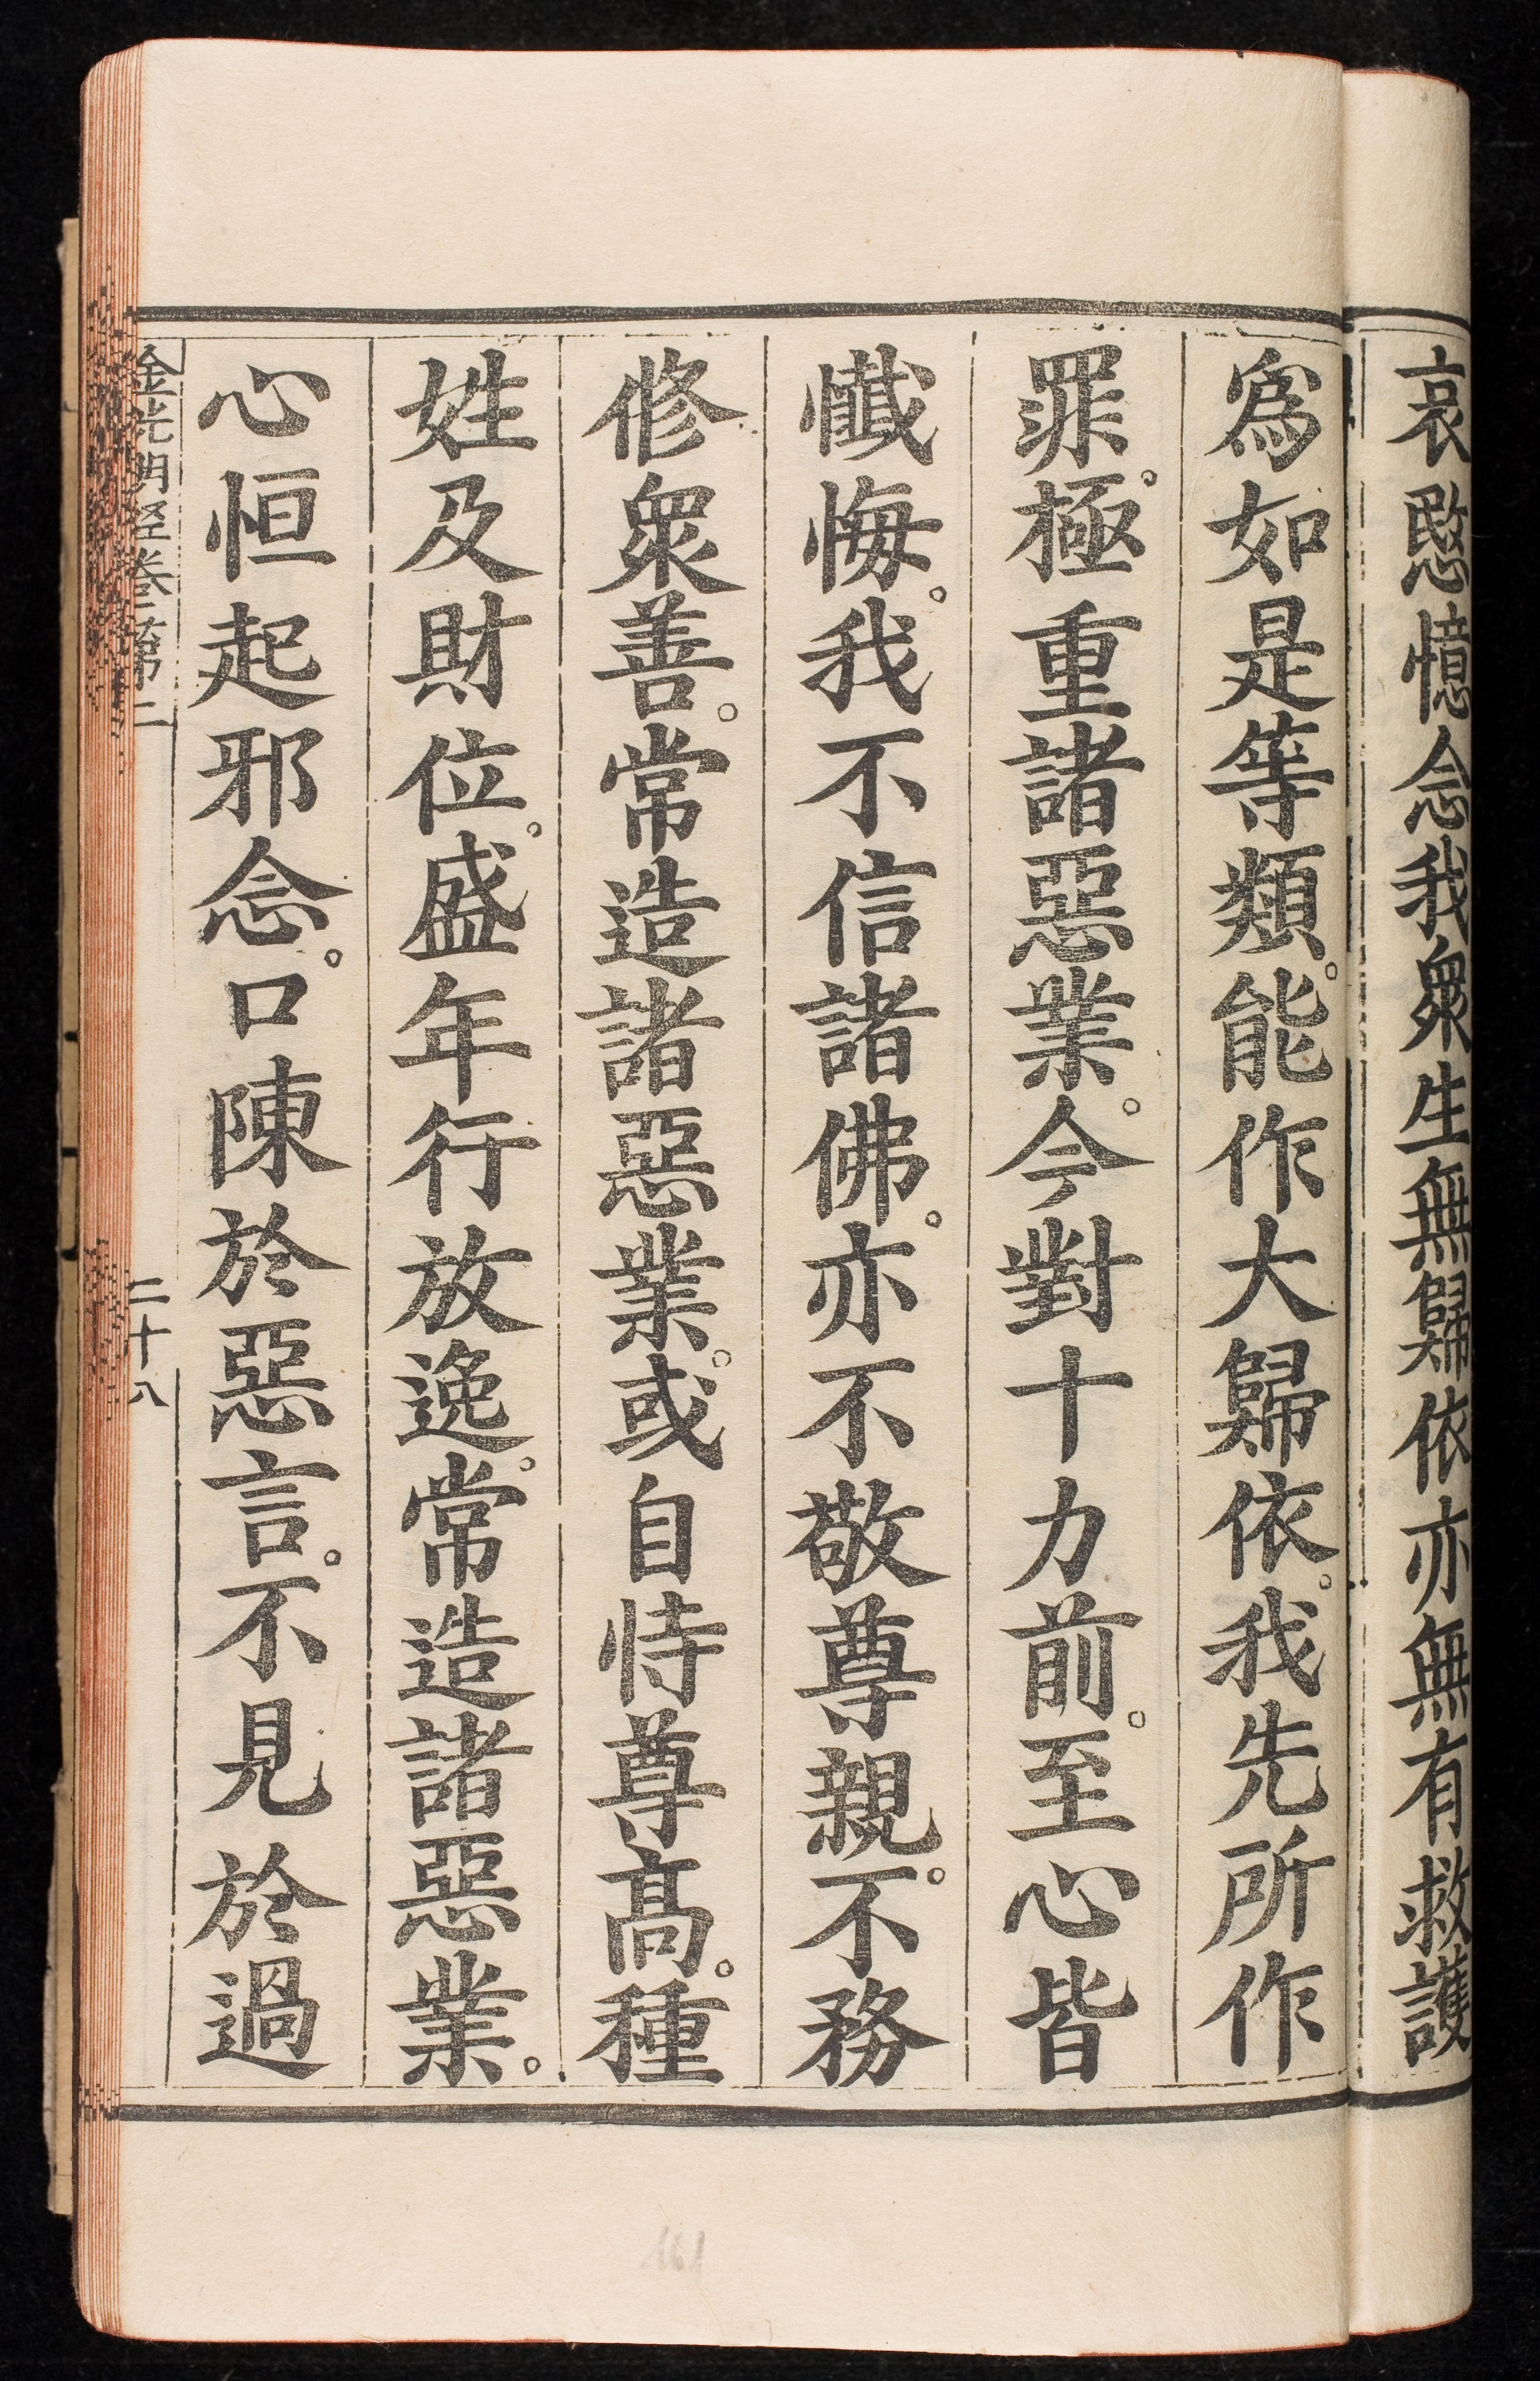 哀愍憶念我衆生無歸依亦無有救護
爲如是等類。能作大歸依。我先所作
罪。極重諸惡業。今對十力前。至心皆
懺悔。我不信諸佛。亦不敬尊親。不務
修衆善。常造諸惡業。或自恃尊高。種
姓及財位。盛年行放逸。常造諸惡業。
心恒起邪念。口陳於惡言。不見於過
金光明經卷第二
二十八